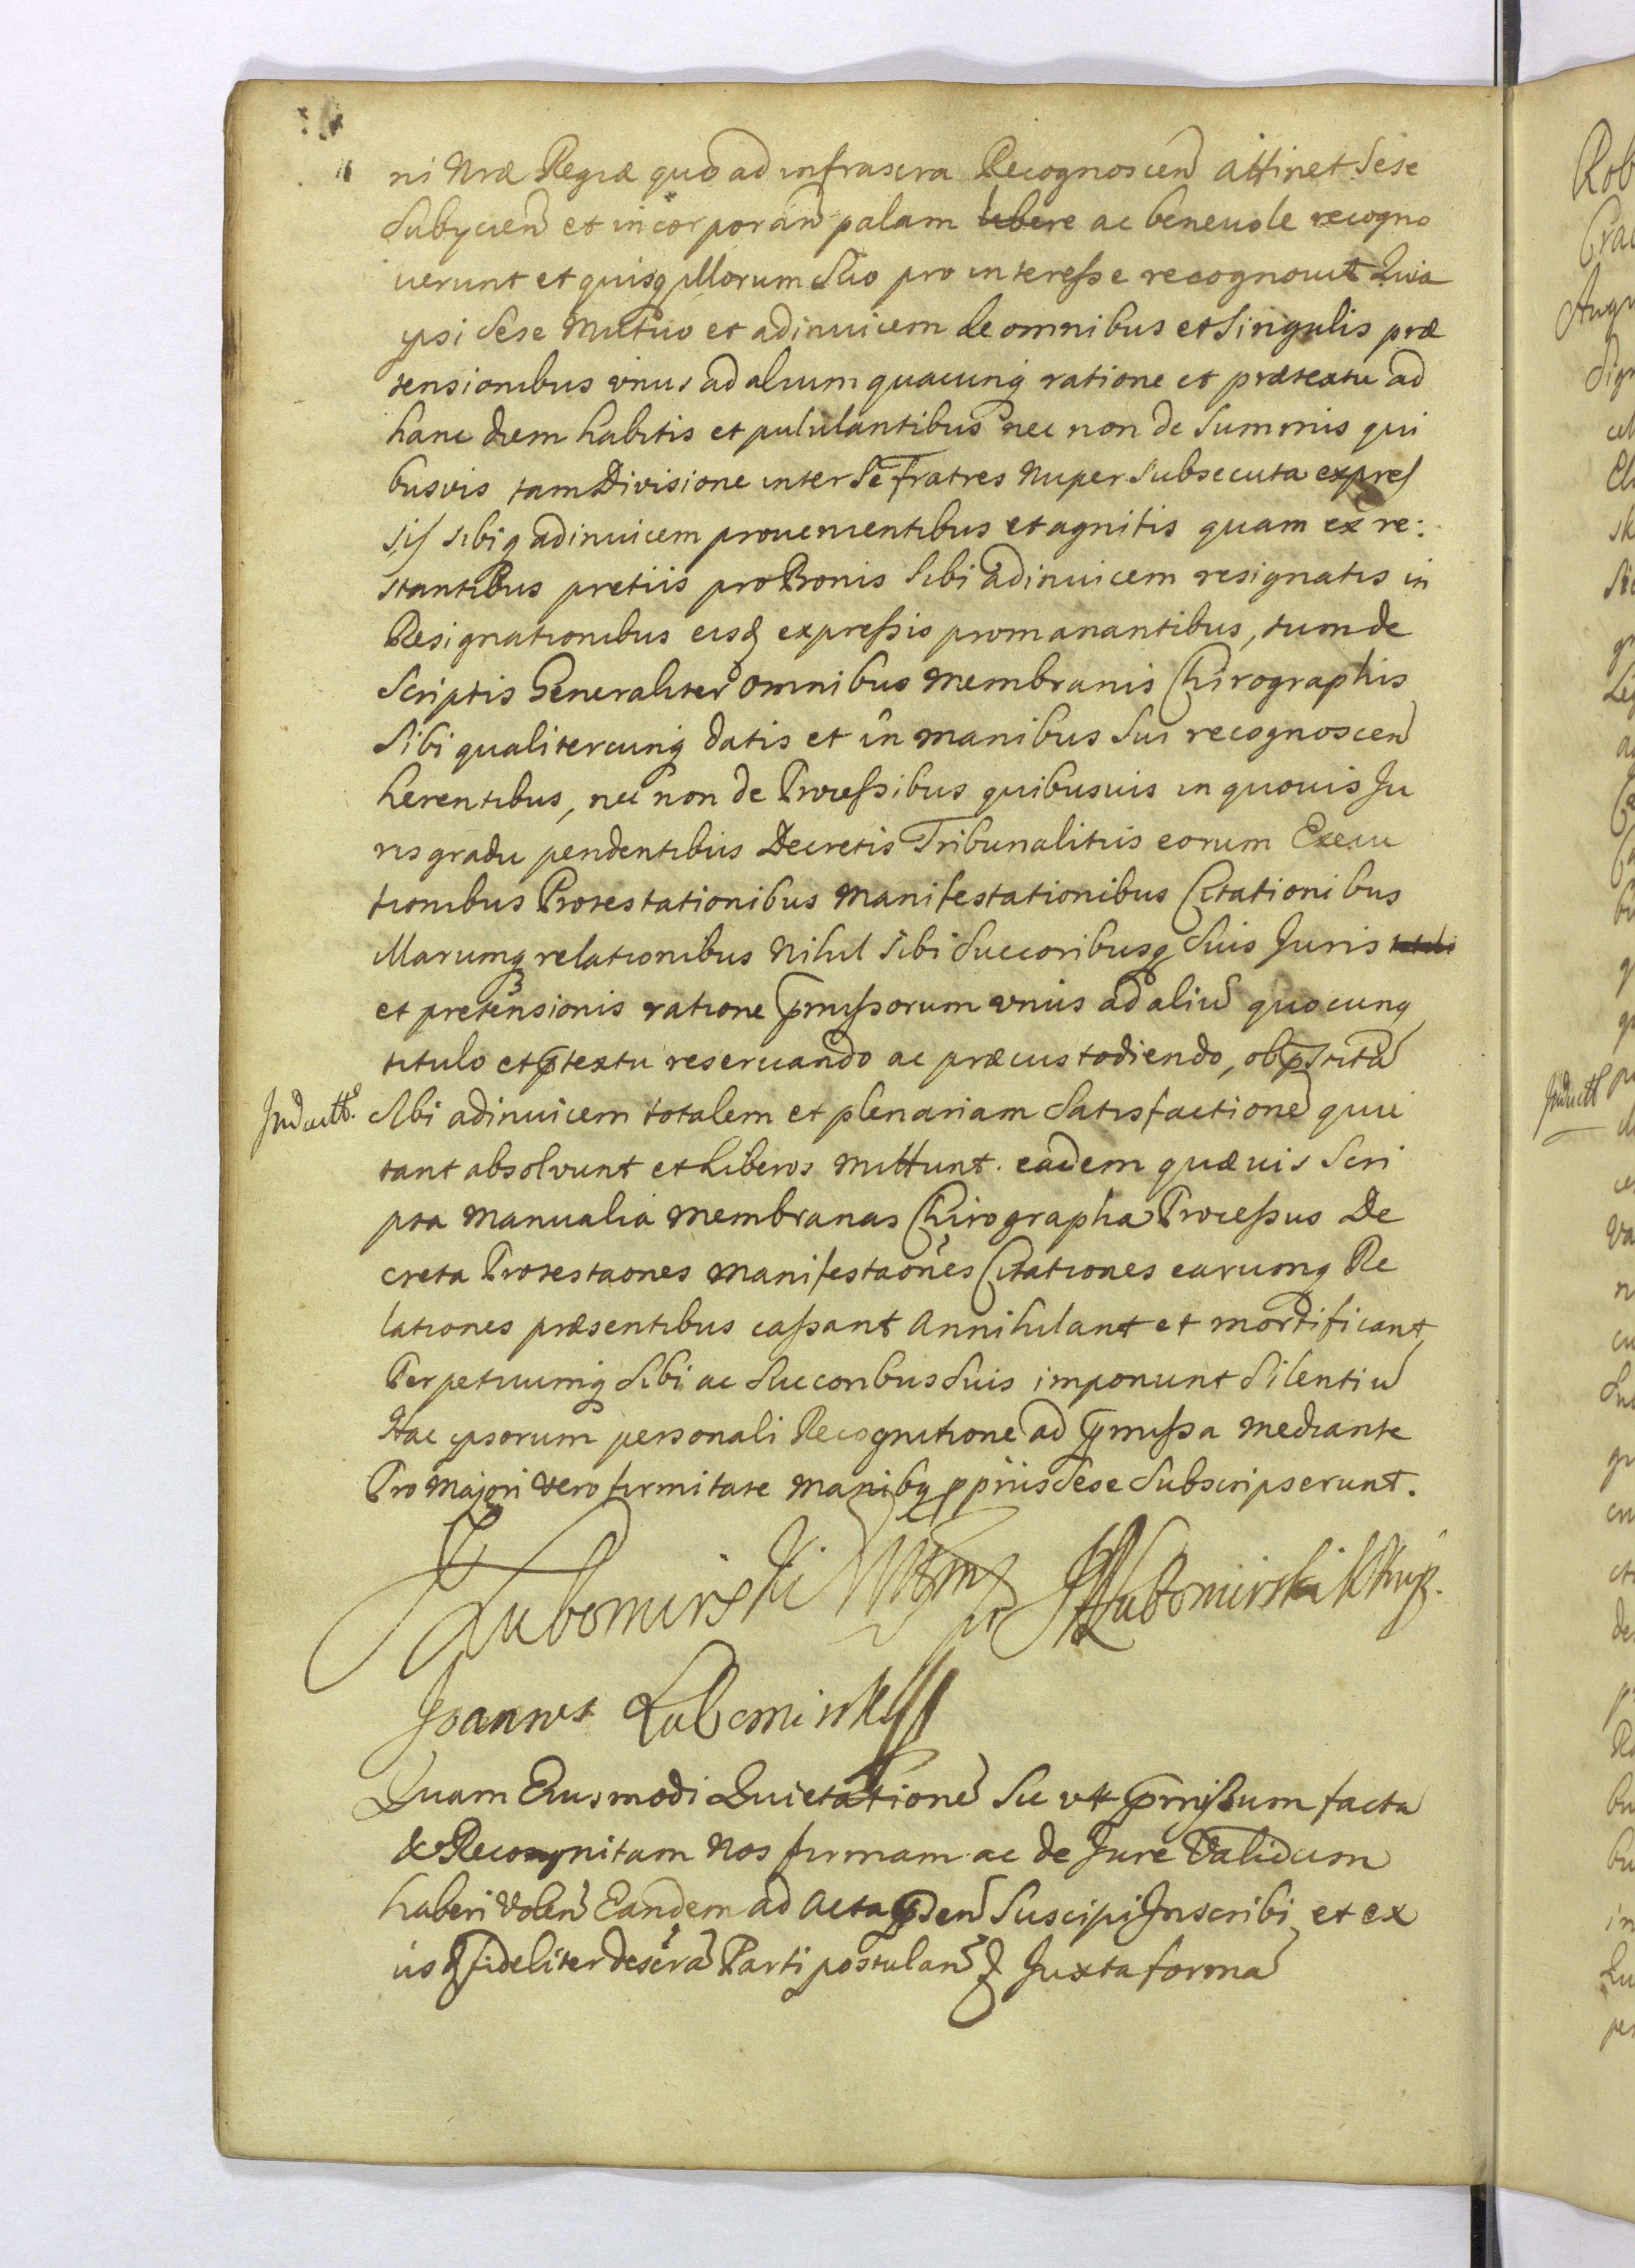 ni Nræ Regiæ quo ad infrascra Recognoscen attinet Sese
Subycien et incorporan palam libere ac beneuole recogno
uerunt et quisq illorum Suo pro interesse recognouit Quia
ipsi Sese Mutuo et adinuicem de omnibus et Singulis præ
tensionibus vnus ad alium quacunq ratione et prætextu ad
hanc diem habitis et pululantibus nec non de Summis qui
busvis tam Divisione inter Se fratres Nuper Subsecuta expres
sis sibiq adinuicem prouenientibus et agnitis quam ex re:
stantibus pretiis pro Bonis Sibi adinuicem resignatis in
Resignationibus eisd expressis promanantibus, tum de
Scriptis Generaliter omnibus Membranis Chirographis
Sibi qualitercunq datis et in manibus Sui recognoscen
herentibus, nec non de Processibus quibusuis in quouis Ju
ris gradu pendentibus Decretis Tribunalitiis eorum Execu
tionibus Protestationibus Manifestationibus Citationibus
illarumq relationibus Nihil Sibi Succoribusq Suis Juris
et pretensionis ratione pmissorum vnius ad aliu quocunq
titulo et ptextu reseruando ac præcustodiendo, ob pstita
Sibi adinuicem totalem et plenariam Satisfactione qui
tant absolvunt et Liberos Mittunt. eadem quæuis Scri
pta Manualia Membranas Chirographa Processus De
creta Protestaones Manifestaones Citationes earumq Re
lationes præsentibus cassant Annihilant et mortificant
Perpetuumq Sibi ac Succoribus Suis imponunt Silentiu
Hac ipsorum personali Recognitione ad pmissa Mediante
Pro Majori vero firmitate Manibq ppriis Sese Subscripserunt.
Lubomirski Lubomirski
Joannes Lubomirski
Quam Eiusmodi Quietatione Sic vt pmissum facta
& Recognitam Nos firmam ac de Jure Validam
haberi Volen Eandem ad Acta pden Suscipi Inscribi et ex
iisd fideliter descra Parti postulan Juxta forma